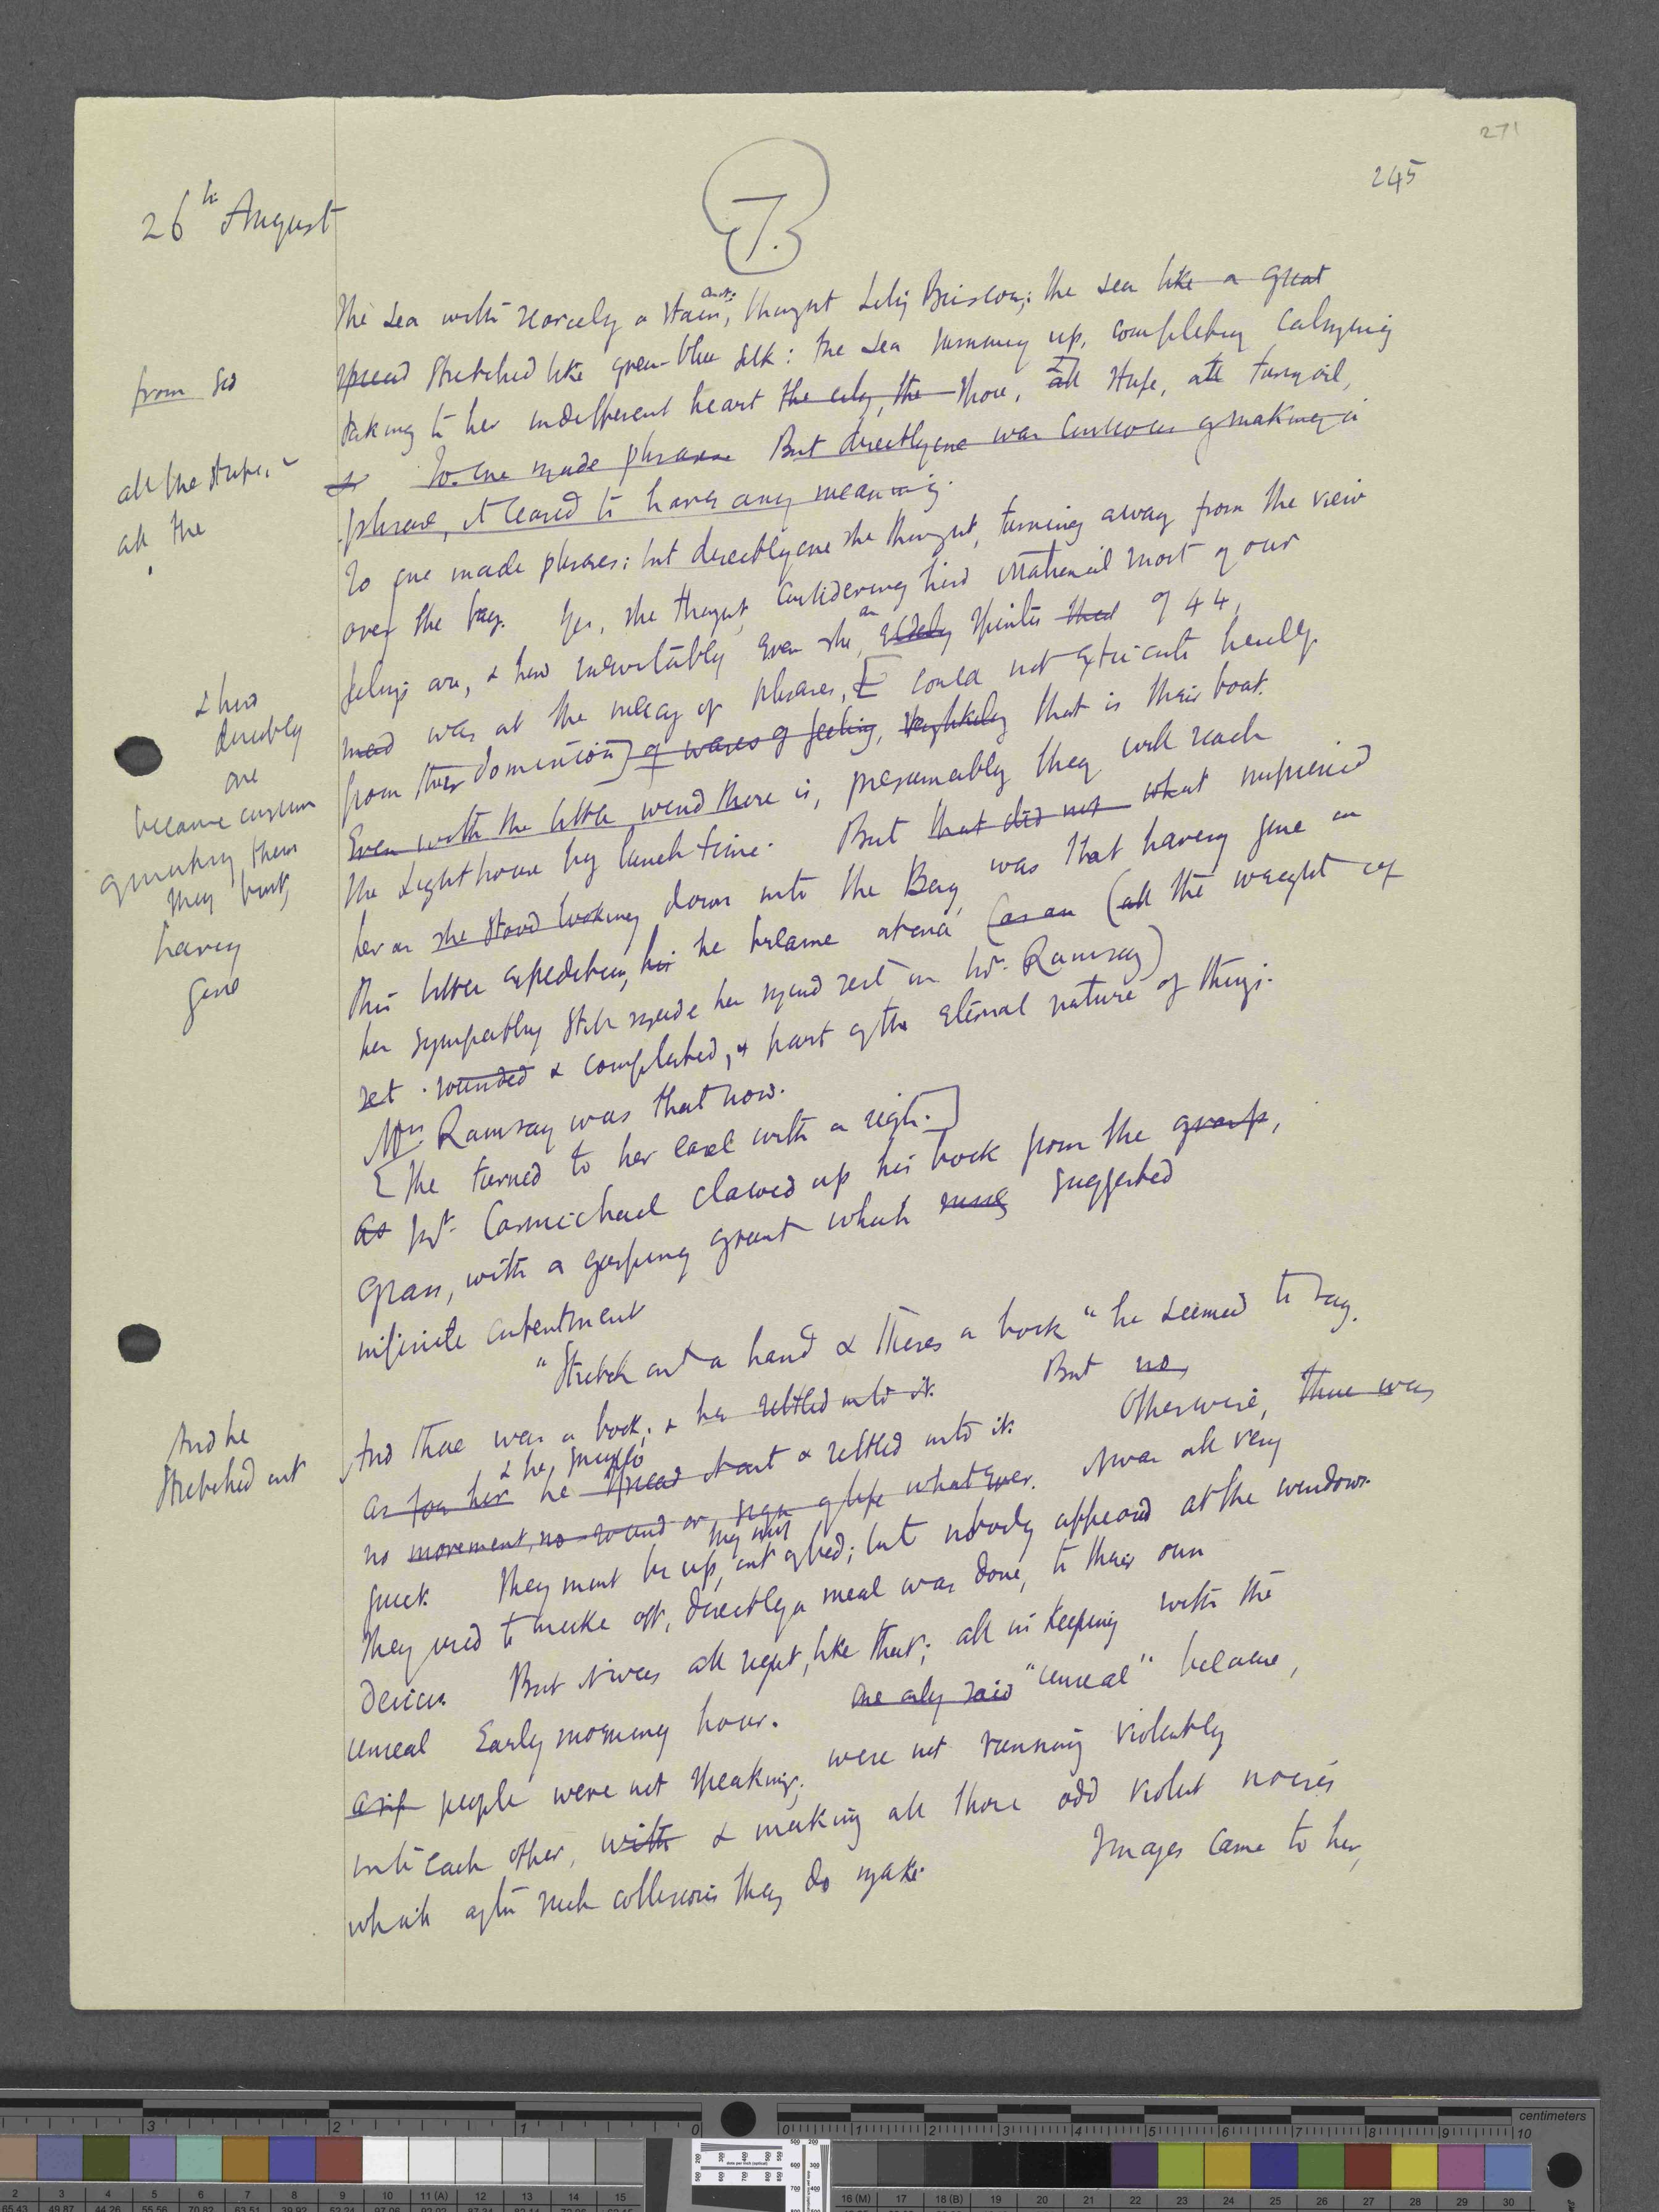 271
245
26th August
7.
The sea with scarcely a stain on it, thought Lily Briscoe; the sea like a great
spread stretched like green-blue silk: the sea summing up, completing
from so
taking to her indifferent heart the city, the shore, all strife, all turmoil,
all the strife,
So one made phrases But directly one was conscious of making a
all the
phrase, it ceased to have any meaning.
So one made phrases: but directly one she thought, turning away from the view
over the bay. Yes, she thought, considering how irrational most of our
feelings are, & how inevitably even she, an elderly spinster that of 44,
& how
directly
one
became conscious
of making them
they burst,
having
gone
was at the mercy of phrases, [ could not extricate herself
from their dominion] of waves of feeling, very likely that is their boat.
Even with the little wind there is, presumably they will reach
the Lighthouse by lunch time. But that did not what surprised
her as she stood looking down into the Bay, was that having gone on
this little expedition, his he became at once (as an (all the weight of
her sympathy still made her mind rest on Mr. Ramsay)
set rounded & completed, & part of the eternal nature of things.
Mrs Ramsay was that now.
[She turned to her easel with a sigh.]
as Mr. Carmichael clawed up his book from the grass,
grass, with a gasping grunt which suggested
infinite contentment
"Stretch out a hand & theres a book" he seemed to say.
And there was a book; & he settled into it. But no,
And he
stretched out
as for her he spread it out & settled into it. Otherwise, there was
& he
no movement, no sound or sign of life whatever. It was all very
quiet. They must be up, out of bed; but nobody appeared at the window.
they must
They used to make off, directly a meal was done, to their own
devices But it was all right, like that; all in keeping with the
unreal Early morning hour. One only said "unreal" because,
as if people were not speaking, were not running violently
into each other, with & making all those odd violent noises
which after such collisions they do make. Images came to her,
centimeters
3 2 1 0
0 1 2 3 4 5 6 7 8 9 10
2 3 4 5 6 7 8 9 10 11 (A) 12 13 14 15
16 (M) 17 18 (B) 19 20 21 22 23 24 25 26 27 28 29 30